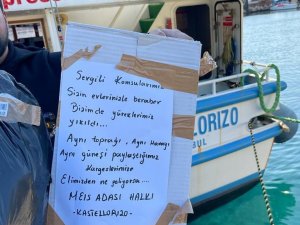 Sevgili Komşularımız
Sizin evlerinizle beraber
Bizimde yüreklerimiz
yıkıldı...
Aynı toprağı, Aynı Havayı
Aynı güneşi paylaştığımız
Kardeşlerimize
Elimizden ne geliyorsa....
MEİS ADASI HALKI
-KASTELLORIZO-
LLORIZO
BUL